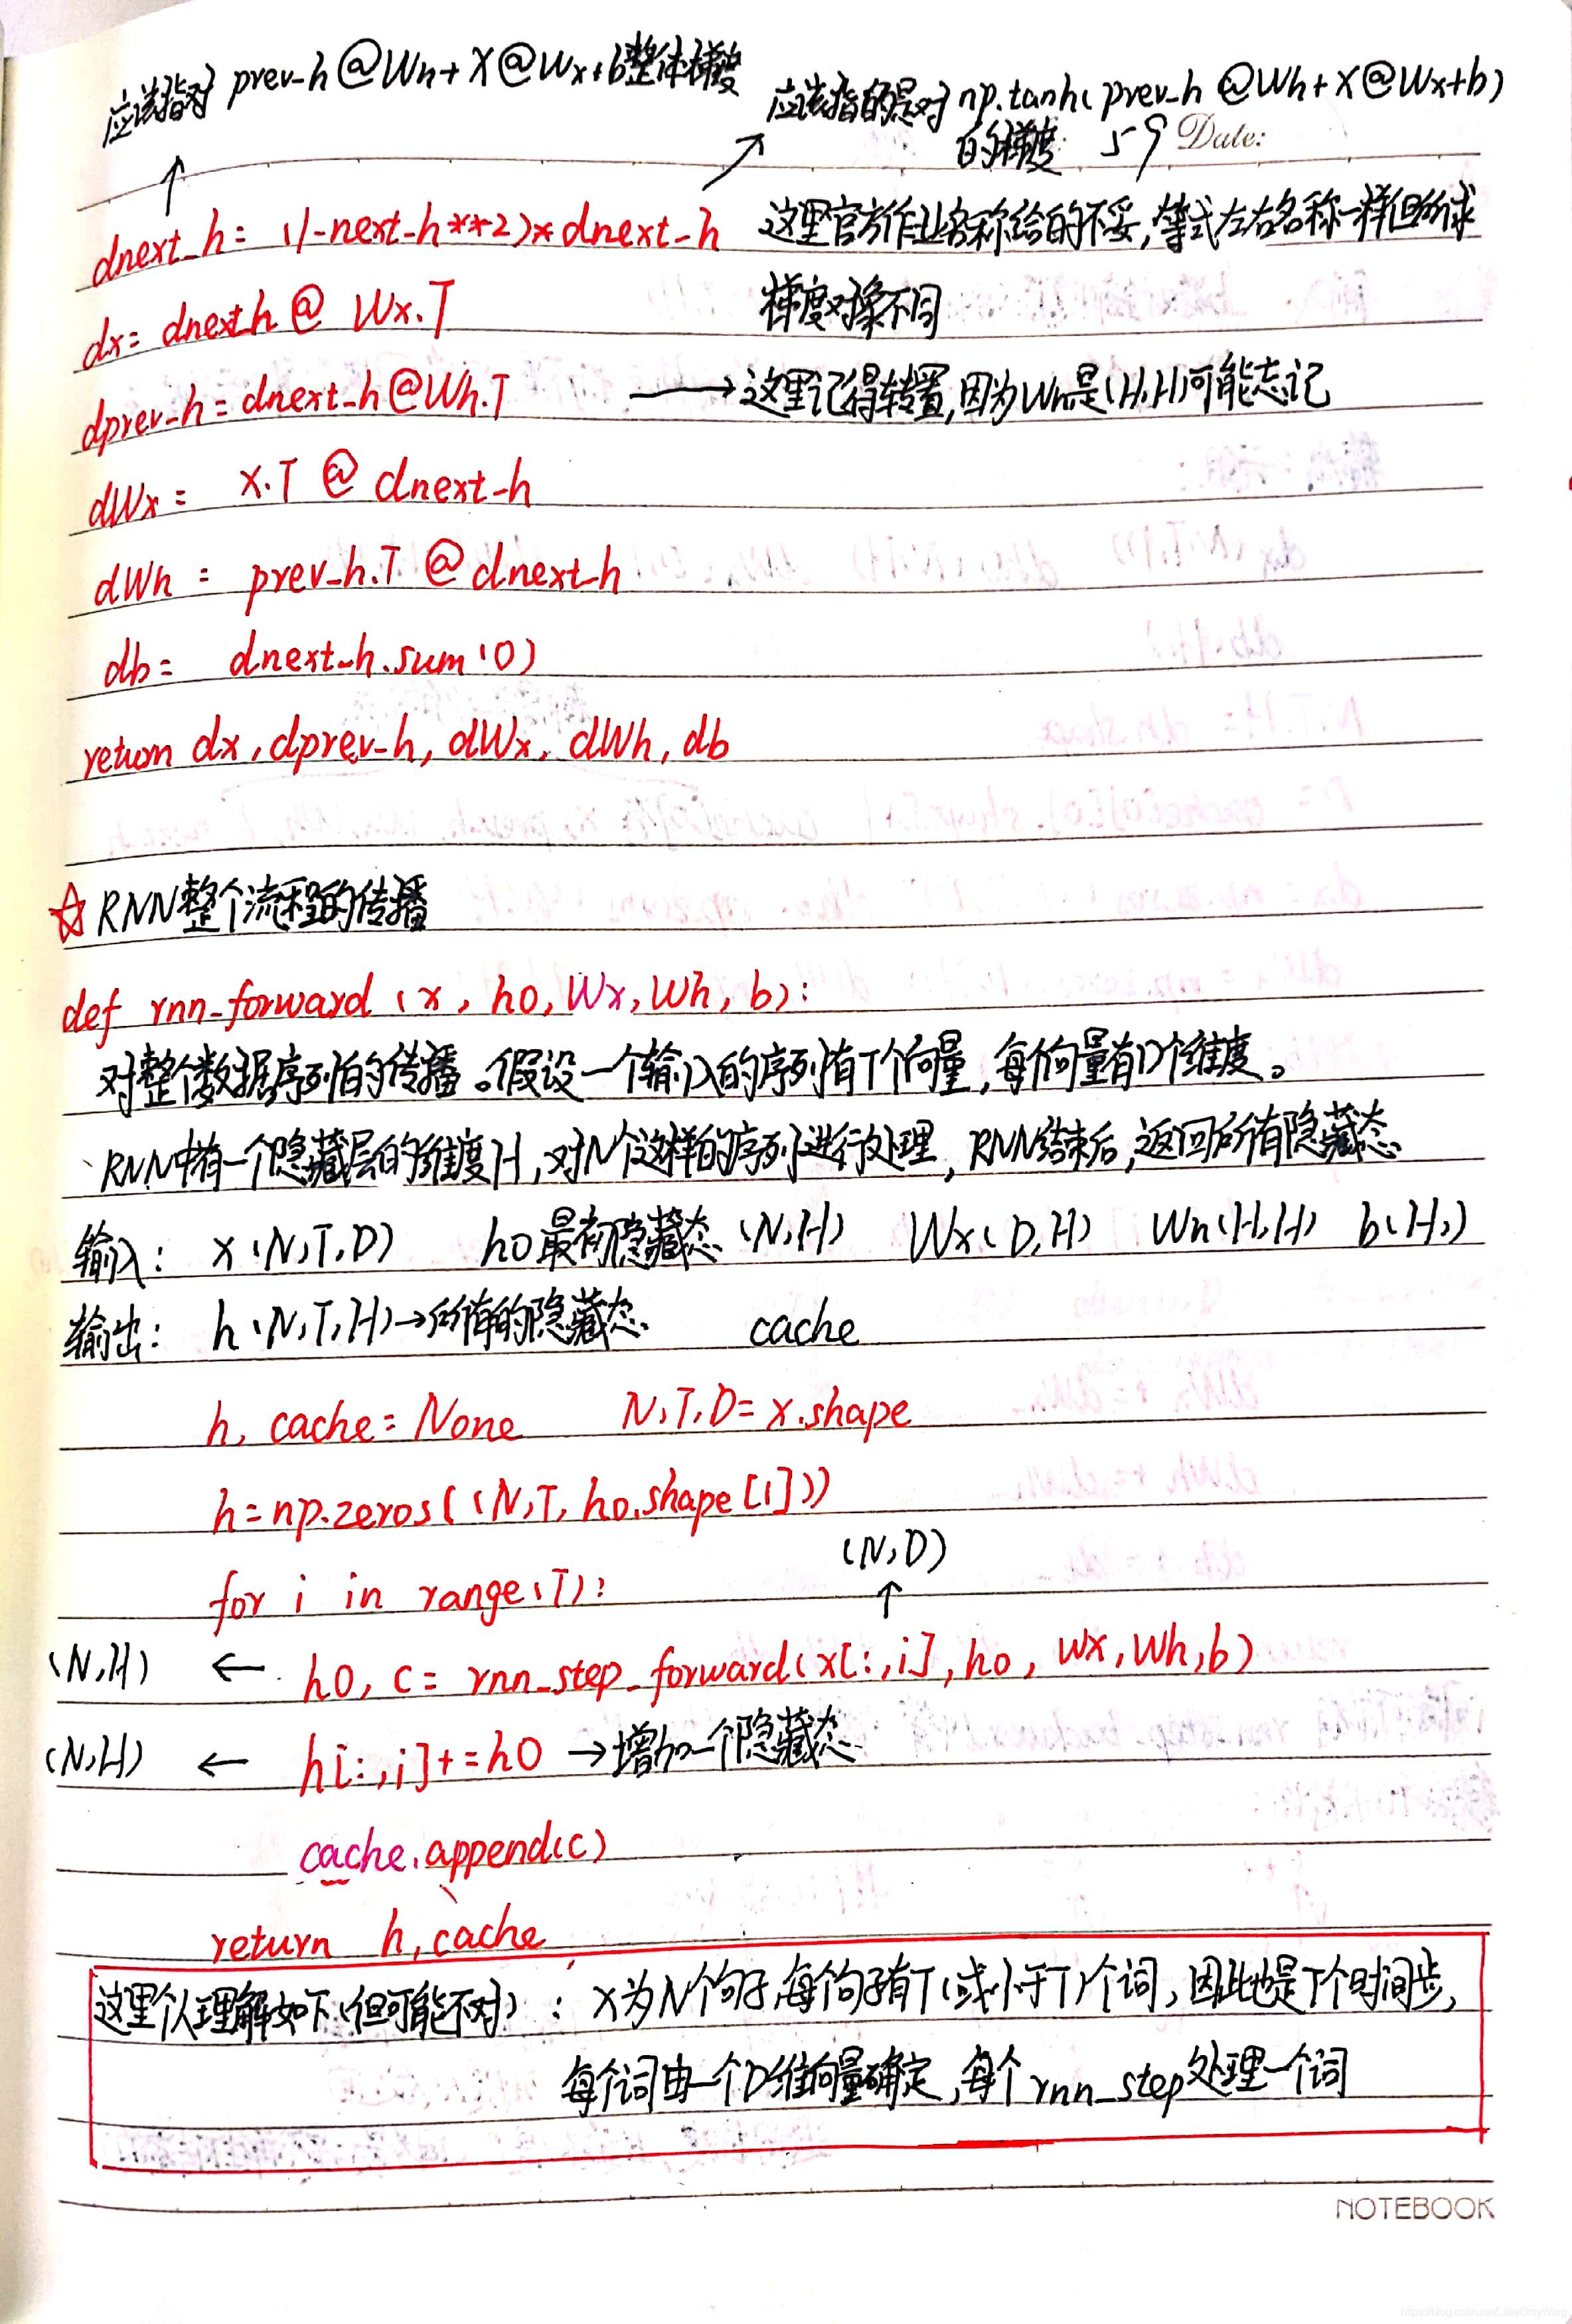 应该指对 prev_h@Wh+X@Wx+b整体梯度
应该指的是对np.tanh(prev_h @Wh+X@Wx+b)
的梯度 59 Date:
dnext_h = (1-next_h**2)*dnext_h 这里官方作业名称给的不妥,等式左右名称一样但所求
dx = dnext_h @ Wx.T 梯度对象不同
dprev_h = dnext_h@Wh.T → 这里记得转置,因为Wh是(H,H)可能忘记
dWx = X.T @ dnext_h
dWh = prev_h.T @ dnext_h
db = dnext_h.sum(0)
return dx, dprev_h, dWx, dWh, db
☆ RNN整个流程的传播
def rnn_forward (x, h0, Wx, Wh, b):
对整个数据序列的传播。假设一个输入的序列有T个向量,每个向量有D个维度。
RNN中有一个隐藏层的维度H,对N个这样的序列进行处理,RNN结束后,返回所有隐藏态
输入: x(N,T,D) h0最初隐藏态(N,H) Wx(D,H) Wh(H,H) b(H,)
输出: h(N,T,H)→所有的隐藏态 cache
h, cache = None N,T,D = x.shape
h=np.zeros((N,T,h0.shape[1]))
for i in range(T):
(N,D)
↑
(N,H) ← h0, c = rnn_step_forward(x[:,i],h0, Wx,Wh,b)
(N,H) ← h[:,i]+=h0 →增加一个隐藏态
cache.append(c)
return h,cache
这里个人理解如下(但可能不对): X为N个句子,每个句子有T(或小于T)个词,因此也是T个时间步,
每个词由一个D维向量确定,每个rnn_step处理一个词
NOTEBOOK
https://blog.csdn.net/LittleGreyWing